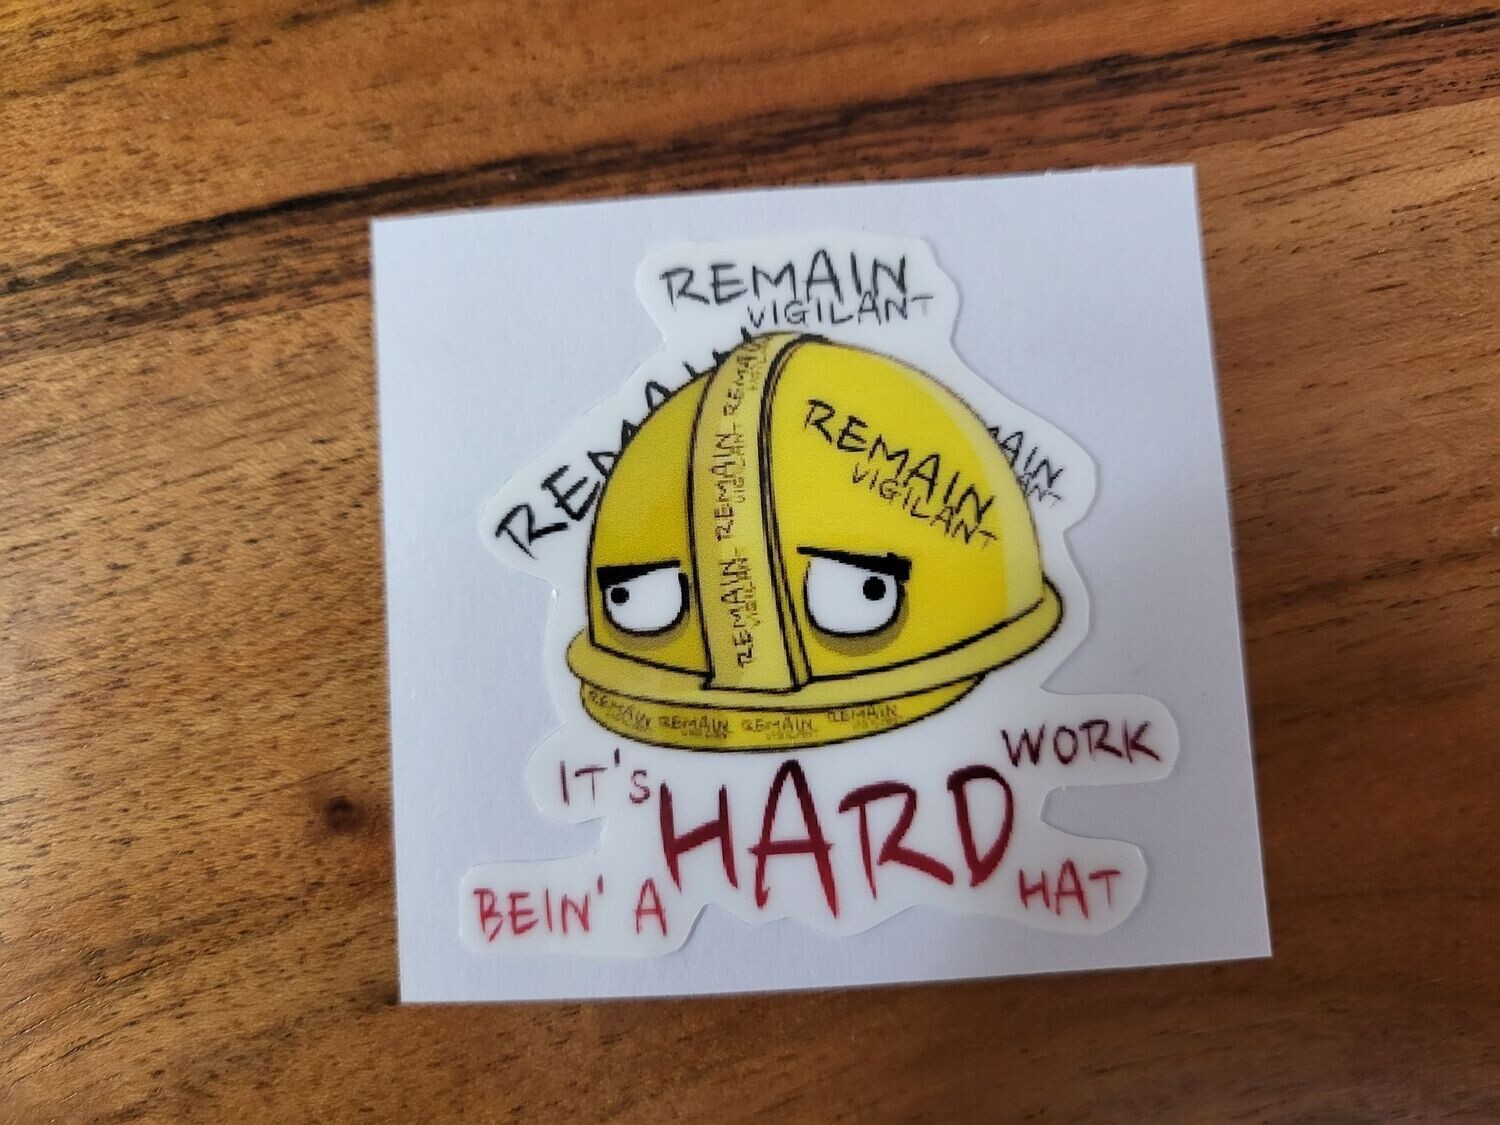 REMAIN
VIGILANT
REMAIN
VIGILANT
REMAIN
VIGILANT
REMAIN
VIGILANT
REMAIN
VIGILANT
REMAIN
VIGILANT
REMAIN
REMAIN
REMAIN
IT'S HARD WORK
BEIN' A HARD HAT